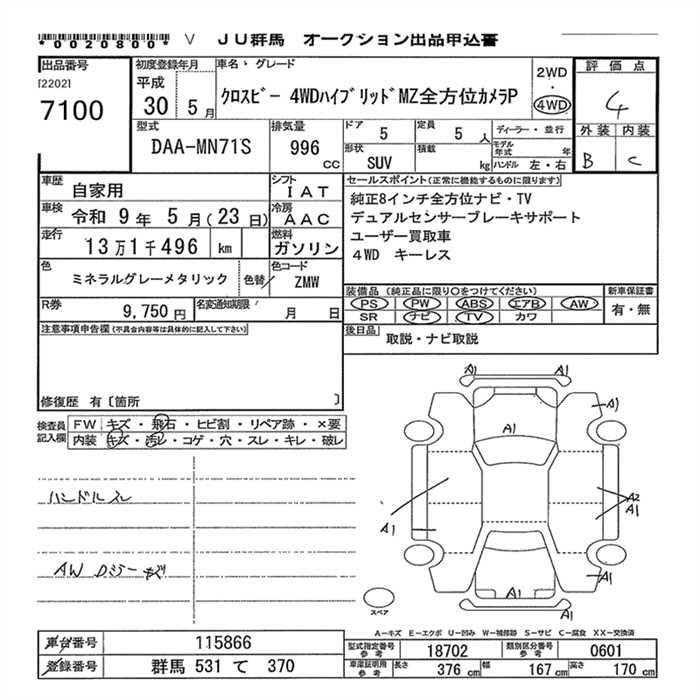 *0020800* V JU群馬 オークション出品申込書
出品番号
[22021
7100
初度登録年月
平成
30 5月
車名・グレード
クロスビー 4WDハイブリッドMZ全方位カメラP
2WD
・
4WD
評価点
4
外装 内装
B C
型式
DAA-MN71S
排気量
996
CC
ドア 5
定員 5 人
ディーラー・並行
形状 SUV
積載 kg
モデル年式 年
ハンドル 左・右
車歴 自家用
シフト IAT
車検 令和 9年 5月(23日)
冷房 AAC
走行 13万1千496 km
燃料 ガソリン
色 ミネラルグレーメタリック
色替
色コード ZMW
R券 9,750円
名変通知期限 月 日
セールスポイント(正常に機能するものに限ります)
純正8インチ全方位ナビ・TV
デュアルセンサーブレーキサポート
ユーザー買取車
4WD キーレス
装備品(純正品に限り○をつけてください)
PS PW ABS エアB AW
SR ナビ TV カワ
新車保証書
有・無
後日品 取説・ナビ取説
注意事項申告欄(不具合内容等は具体的に記入して下さい)
修復歴 有〔箇所 〕
検査員記入欄
FW キズ・飛石・ヒビ割・リペア跡・×要
内装 キズ・汚レ・コゲ・穴・スレ・キレ・破レ
ハンドルスレ
AW ロジーキズ
A1 A1
A1
A1
A1
A2
A1
A1
A1
A1
スペア
A－キズ E－エクボ U－凹み W－補修跡 S－サビ C－腐食 XX－交換済
車台番号 115866
登録番号 群馬 531 て 370
型式指定番号参考 18702
類別区分番号参考 0601
車庫証明用参考
長さ 376 cm
幅 167 cm
高さ 170 cm